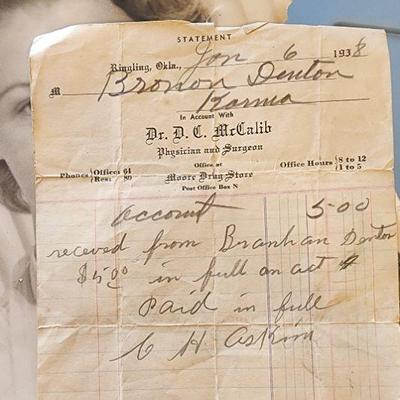 STATEMENT
Ringling, Okla., Jan 6 1938
M Bronson Denton
Karma
In Account With
Dr. D. C. McCalib
Physician and Surgeon
Phones Office: 64 Res: 89
Office at
Moore Drug Store
Post Office Box N
Office Hours 8 to 12 1 to 5
account 5.00
receved from Branhan Denton
$5.00 in full on act
Paid in full
C H Askins